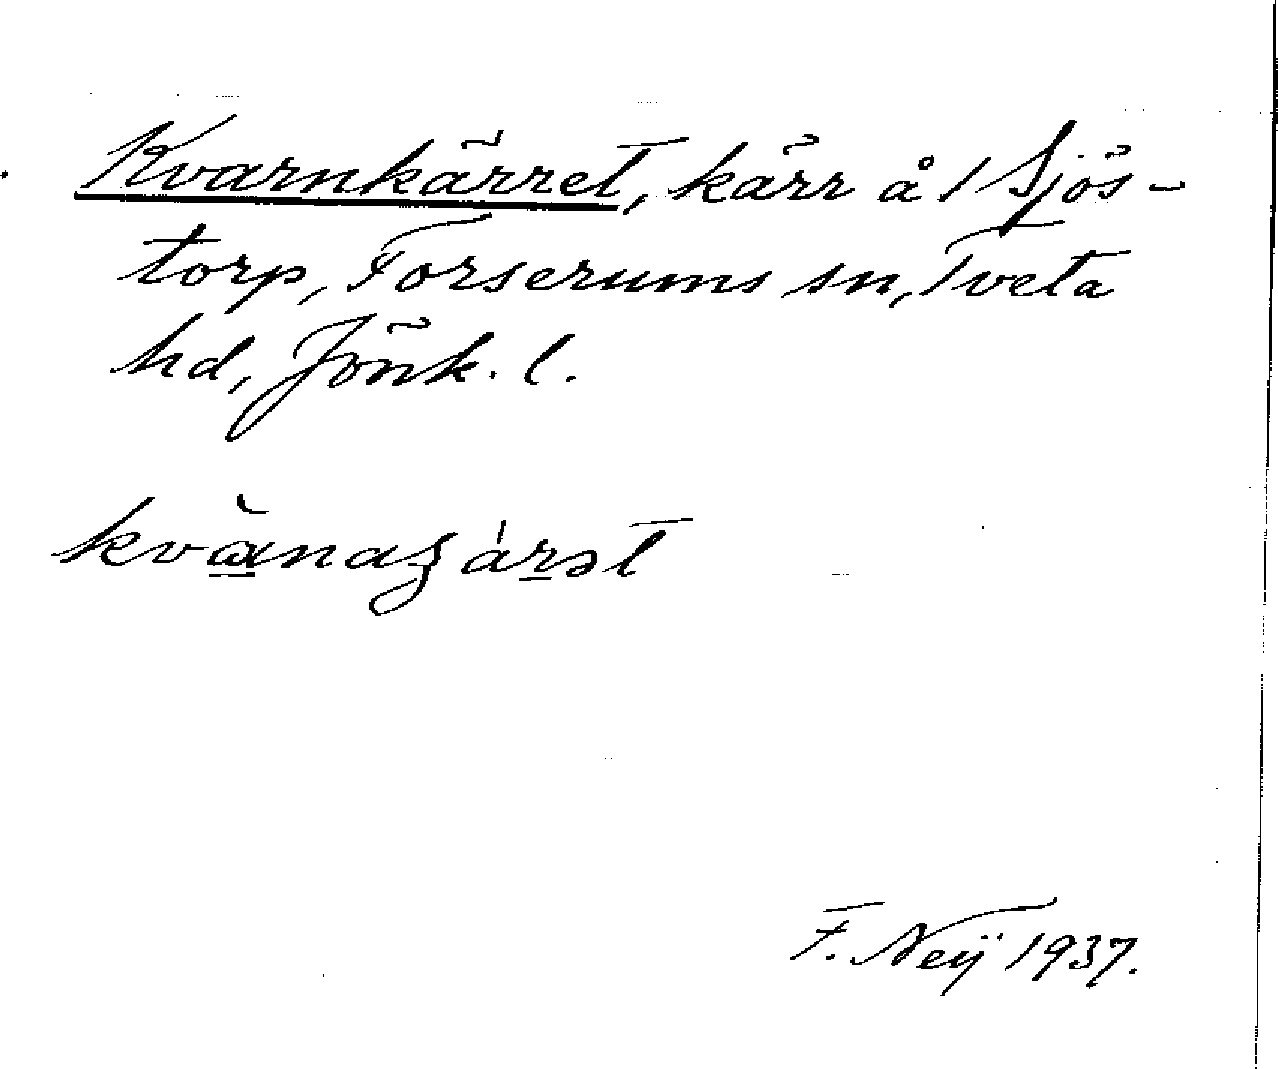 Kvarnkärret, kärr å 1 Sjös-
torp, Forserums sn, Tveta
hd, Jönk. l.
F. Neÿ 1937.